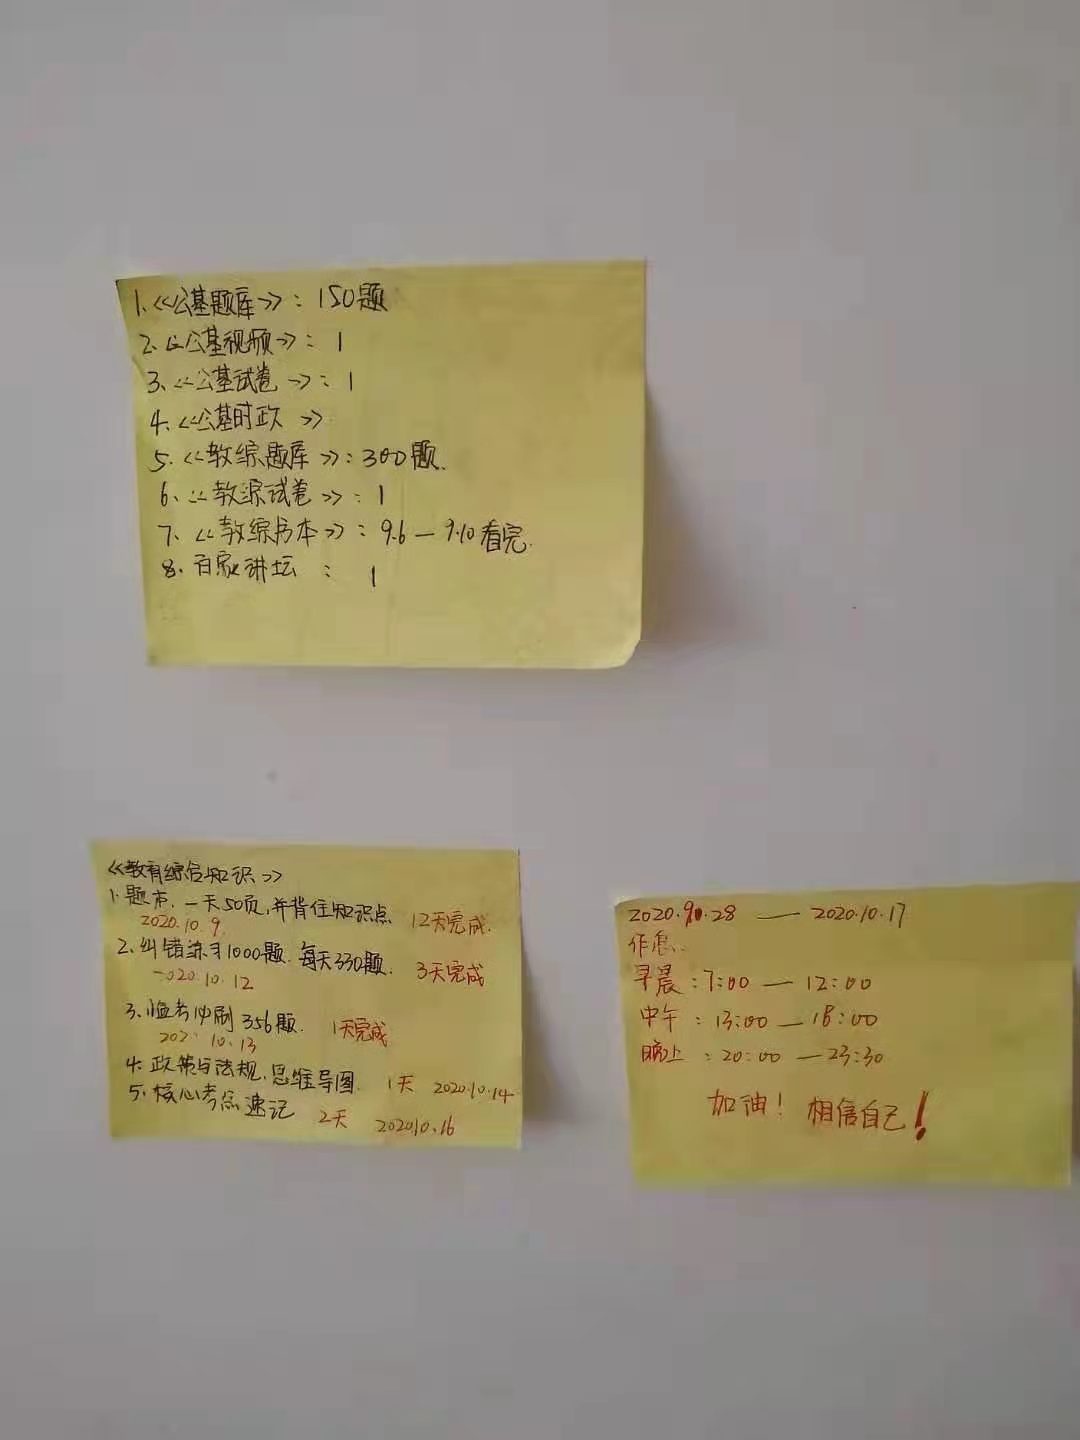 1、《公基题库》：150题
2、《公基视频》：1
3、《公基试卷》：1
4、《公基时政》
5、《教综题库》：300题.
6、《教综试卷》：1
7、《教综书本》：9.6—9.10看完.
8、百家讲坛：1
《教育综合知识》
1、题本，一天50页，并背住知识点 12天完成.
2020.10.9.
2、纠错练习1000题，每天330题. 3天完成
2020.10.12
3、临考必刷356题. 1天完成
2020.10.13
4、政策与法规，思维导图 1天 2020.10.14
5、核心考点速记 2天 2020.10.16
2020.9.28 — 2020.10.17
作息:
早晨：7:00 — 12:00
中午：13:00 — 18:00
晚上：20:00 — 23:30
加油！相信自己！